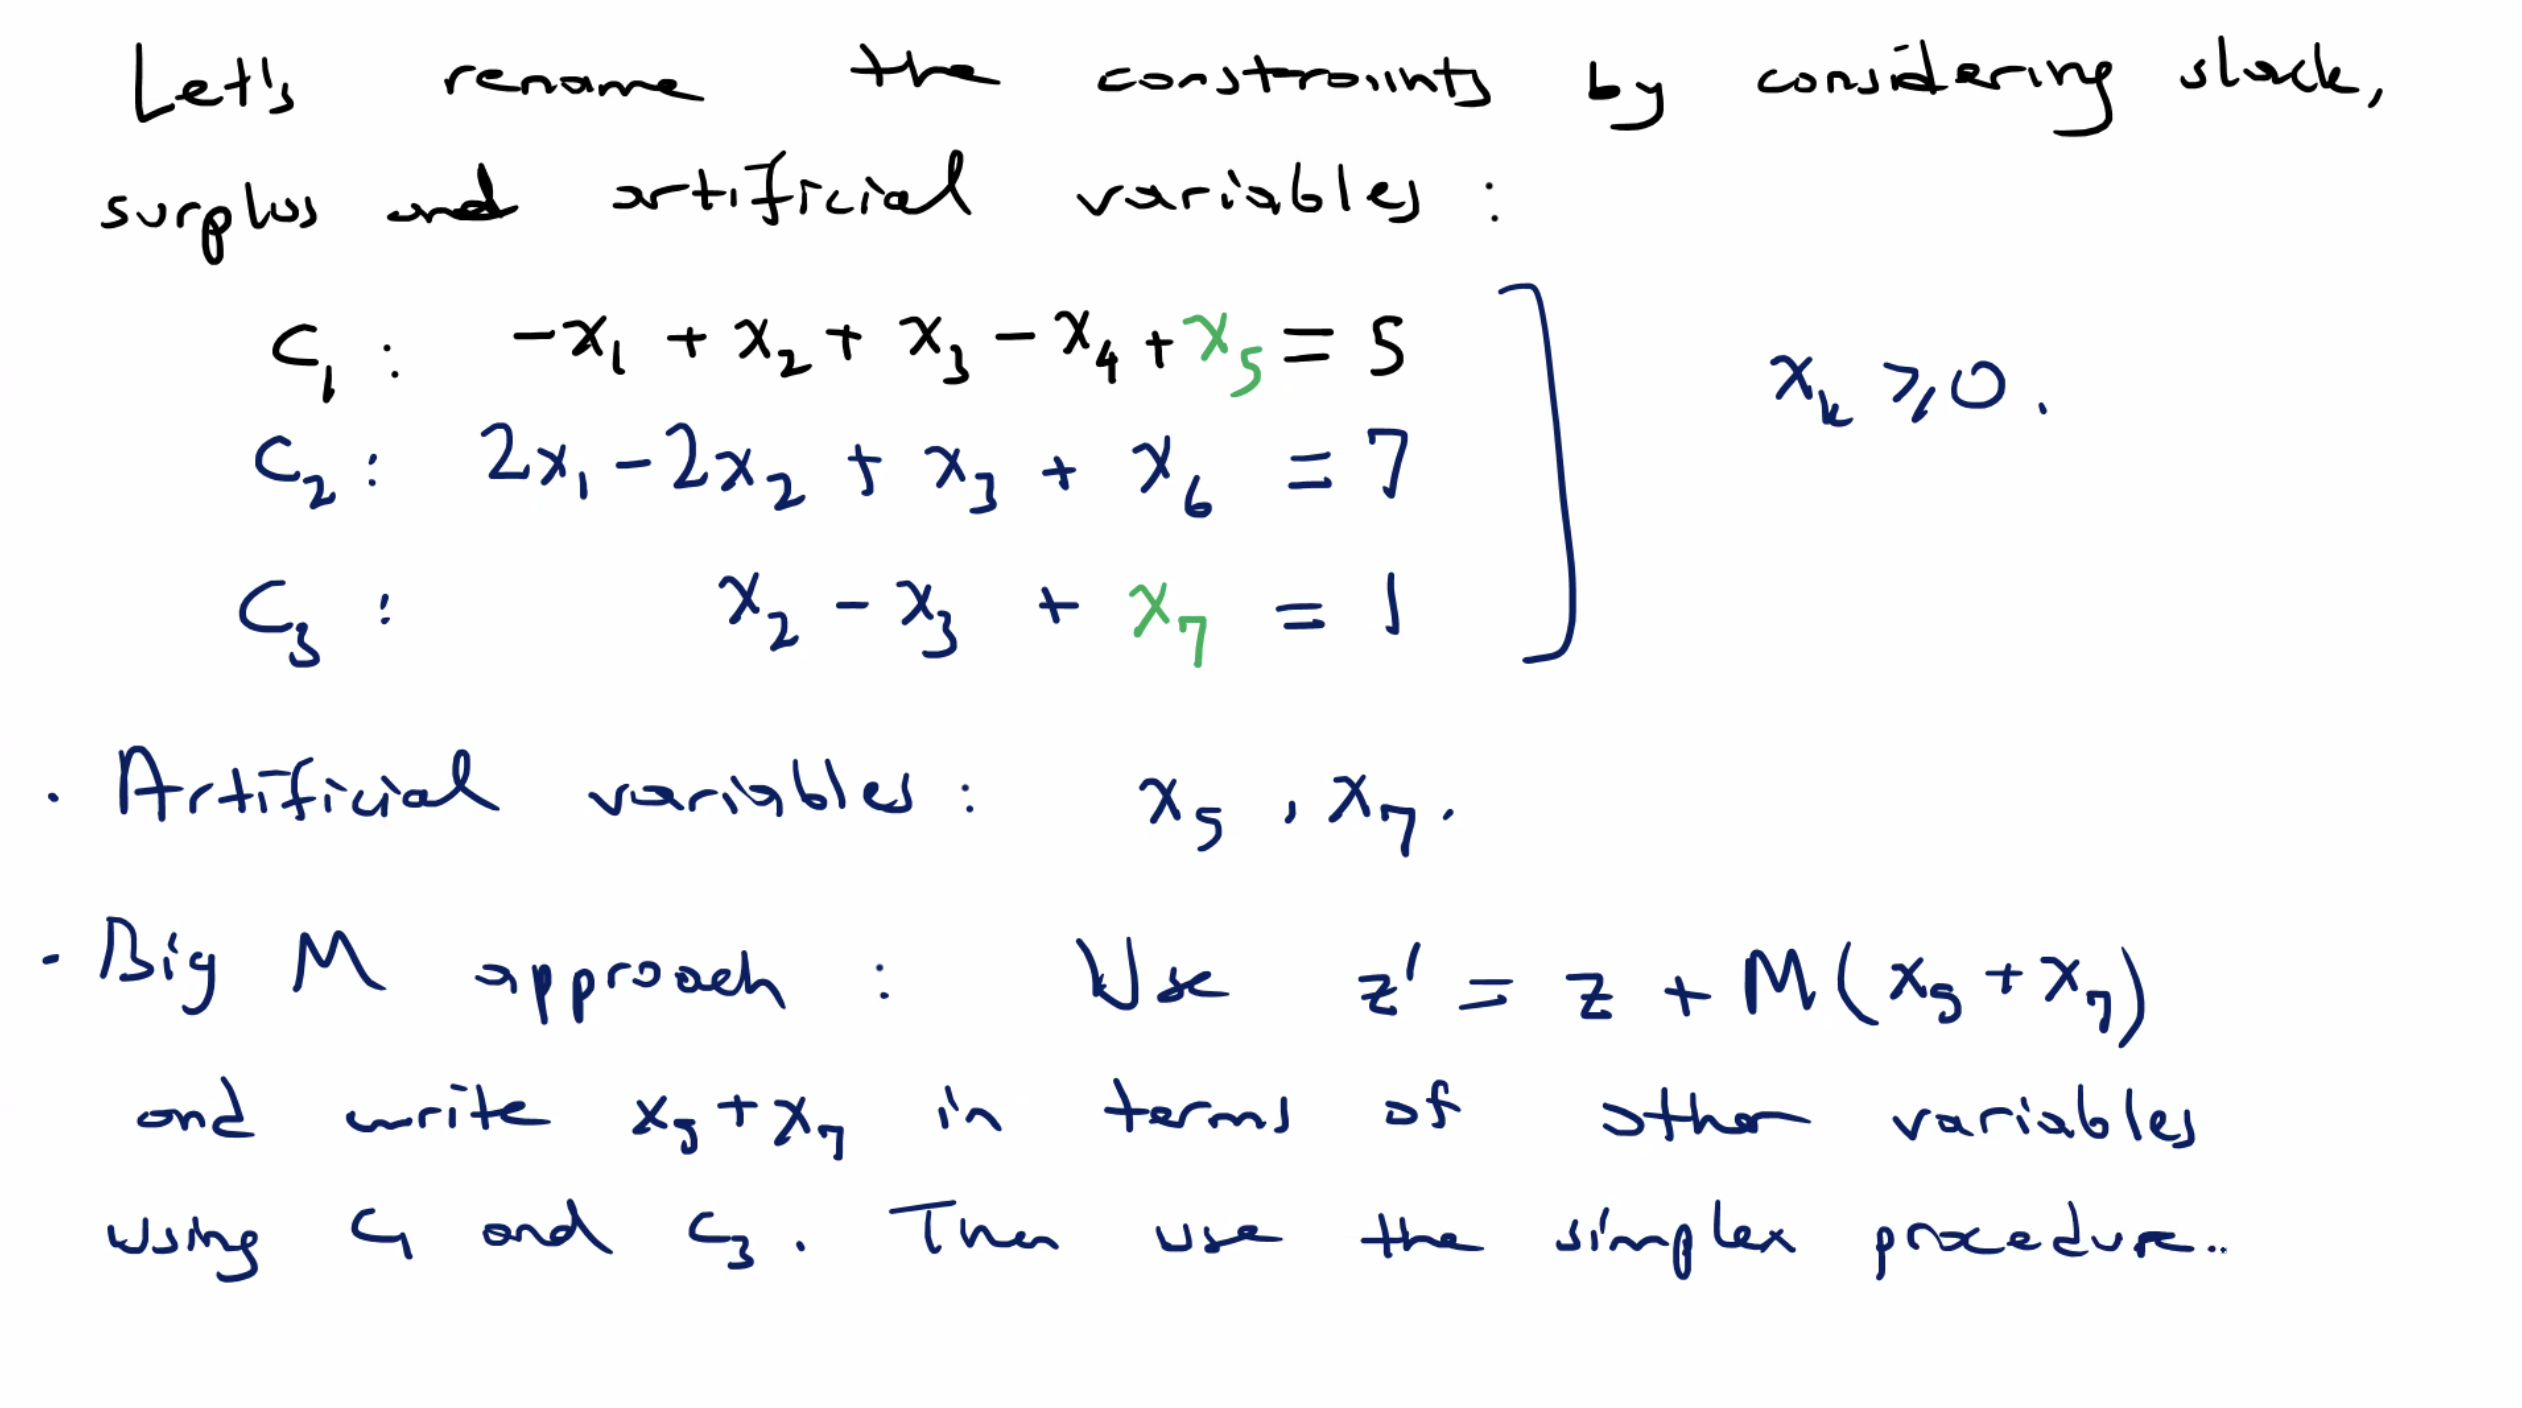 Let's rename the constraints by considering slack,
surplus and artificial variables :
C₁ : -x₁ + x₂ + x₃ - x₄ + x₅ = 5
C₂ : 2x₁ - 2x₂ + x₃ + x₆ = 7
xₖ ⩾ 0.
C₃ : x₂ - x₃ + x₇ = 1
· Artificial variables : x₅ , x₇.
· Big M approach : Use z' = z + M(x₅ + x₇)
and write x₅ + x₇ in terms of other variables
using C₁ and C₃. Then use the simplex procedure..